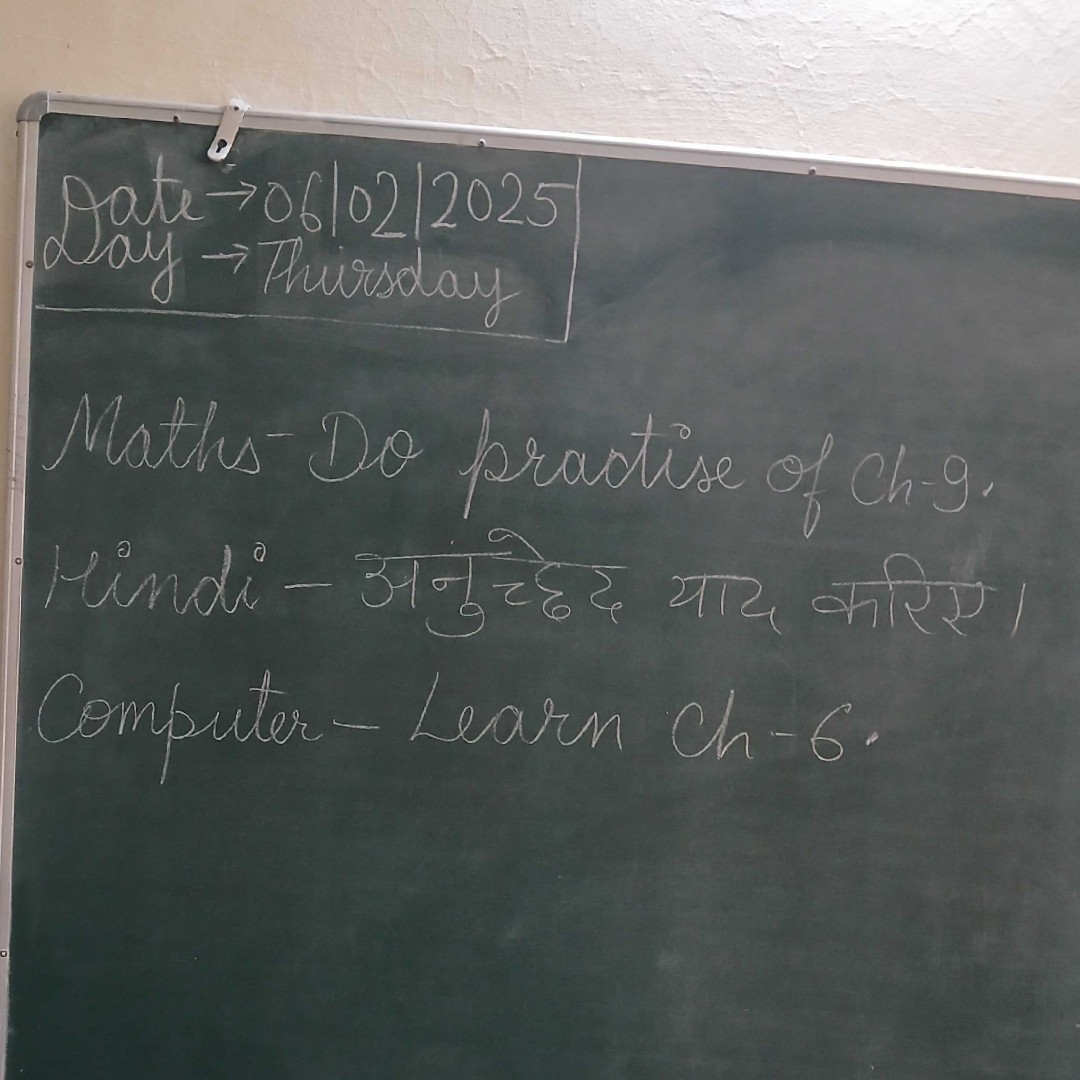 Date → 06|02|2025
Day → Thursday
Maths - Do practise of Ch-9.
Hindi - अनुच्छेद याद करिए।
Computer - Learn Ch-6.